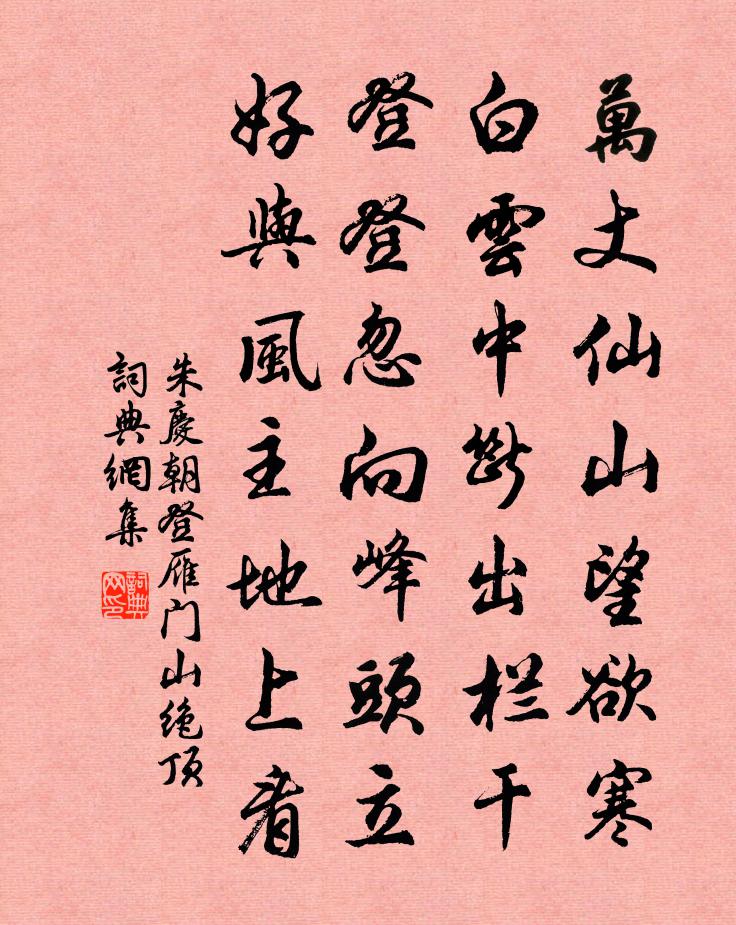 萬丈仙山望欲寒
白雲中斷出栏干
登登忽向峰頭立
好與風主地上看
朱慶朝登雁门山绝顶
詞典網集
詞典网印